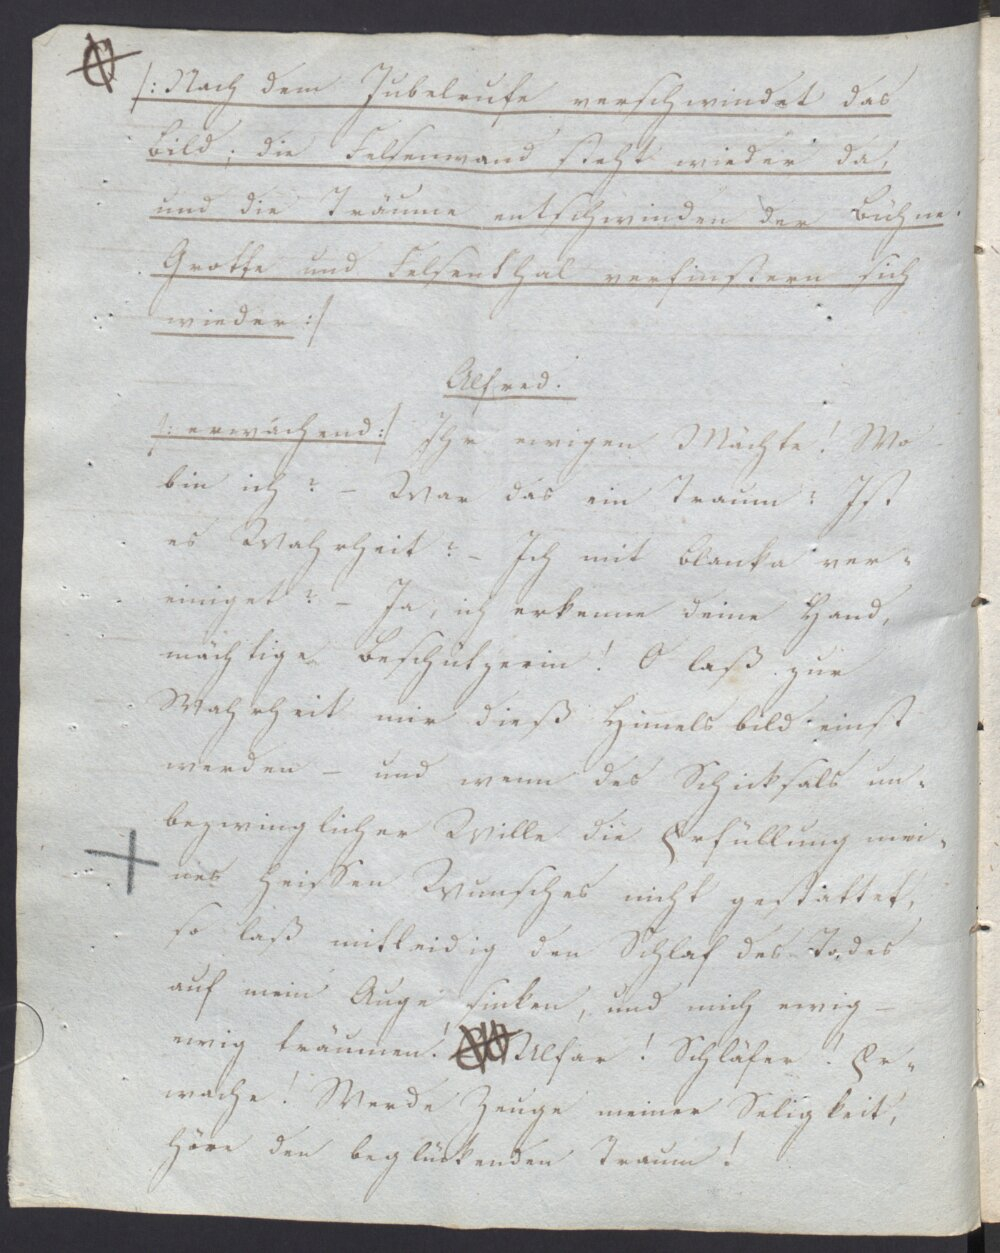 /: Nach dem Jubelrufe verschwindet das
Bild; die Felsenwand steht wieder da,
und die Träume entschwinden der Bühne.
Grotte und Felsenthal verfinstern sich
wieder :/
Alfred.
/: erwachend :/ Ihr ewigen Mächte! Wo
bin ich? – War das ein Traum? Ist
es Wahrheit? – Ich mit Blanka ver-
einiget? – Ja, ich erkenne deine Hand,
mächtige Beschützerin! O laß zur
Wahrheit mir dieß Himmelsbild einst
werden – und wenn des Schicksals un-
bezwinglicher Wille die Erfüllung mei-
nes heissen Wunsches nicht gestattet,
so laß mitleidig den Schlaf des Todes
auf mein Auge sinken, und mich ewig –
ewig träumen! Ulfar! Schläfer! Er-
wache! Werde Zeuge meiner Seligkeit,
höre den beglückenden Traum!